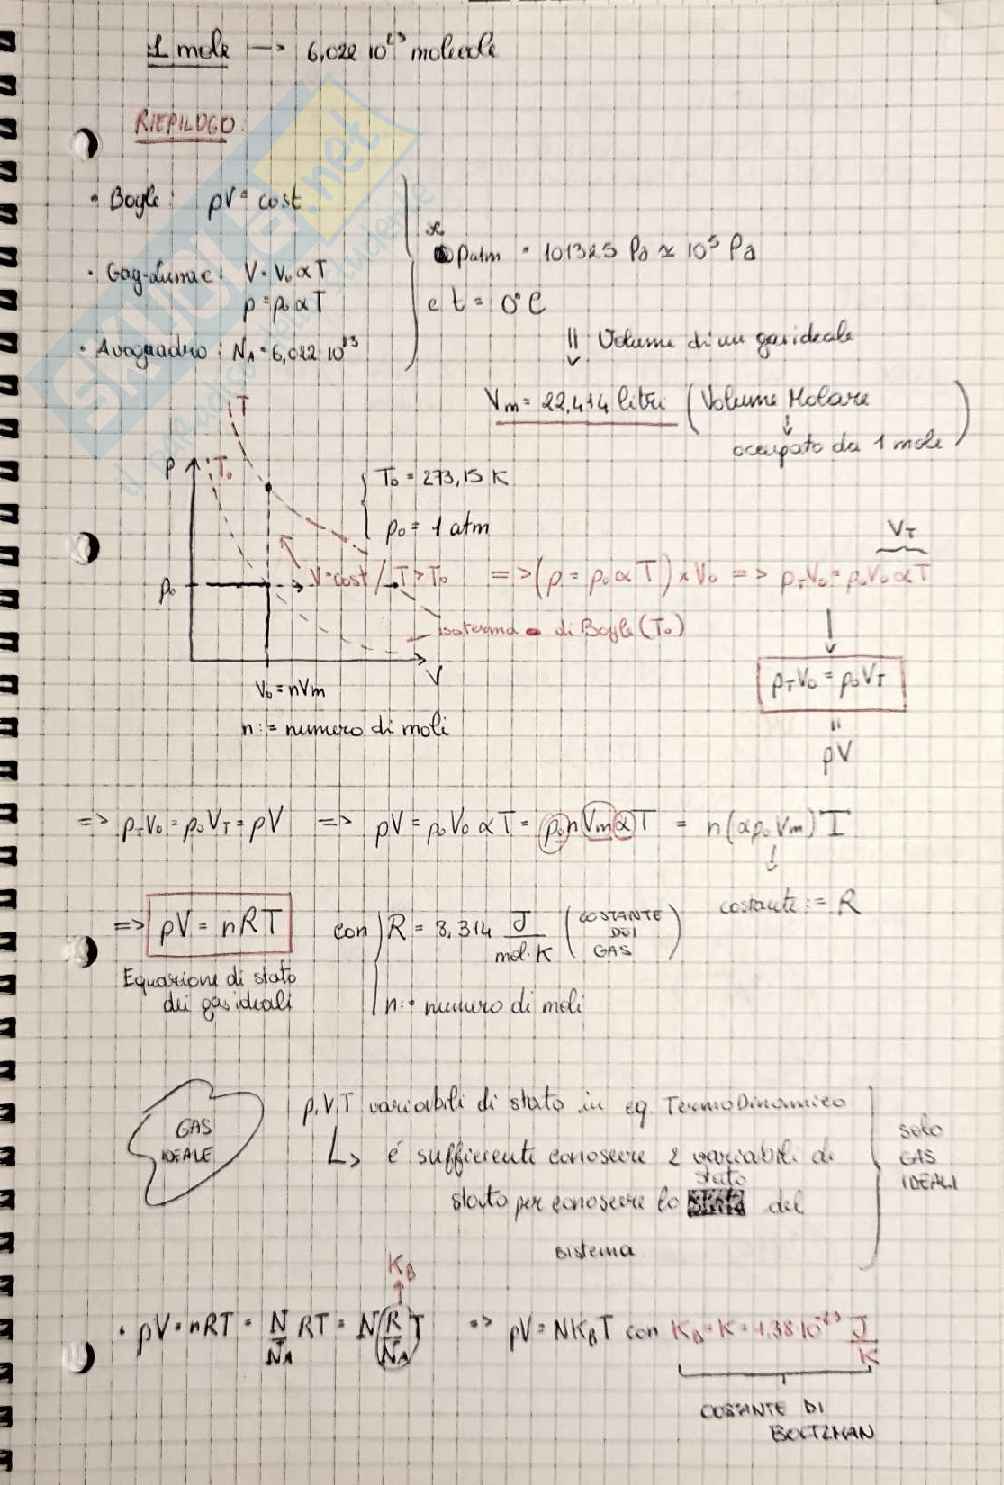 1 mole → 6,022 10²³ molecole
RIEPILOGO:
• Boyle: pV = cost
• Gay-Lussac: V = V₀ αT
p = p₀ αT
• Avoguadro: N_A = 6,022 10²³
Se
patm = 101325 Pa ≈ 10⁵ Pa
e t = 0°C
Volume di un gas ideale
Vm = 22,414 litri (Volume Molare
occupato da 1 mole)
T
p
T₀
T₀ = 273,15 K
p₀ = 1 atm
V_T
p₀
V=cost / T > T₀ => (p = p₀ αT) × V₀ => p_T V₀ = p₀ V₀ αT
isoterma di Boyle (T₀)
V
V₀ = nVm
n := numero di moli
p_T V₀ = p₀ V_T
=
pV
=> p_T V₀ = p₀ V_T = pV => pV = p₀ V₀ αT = p₀ n Vm α T = n(αp₀ Vm) T
costante := R
=> pV = nRT con R = 8,314 J/mol·K (COSTANTE DEI GAS)
Equazione di stato
dei gas ideali
n := numero di moli
GAS
IDEALE
p,V,T variabili di stato in eq TermoDinamico
↳ é sufficiente conoscere 2 variabili di
stato per conoscere lo stato del
sistema
SOLO
GAS
IDEALI
K_B
• pV = nRT = N/N_A RT = N(R/N_A)T => pV = NK_BT con K_B = K = 1,38 10⁻²³ J/K
COSTANTE DI
BOLTZMAN